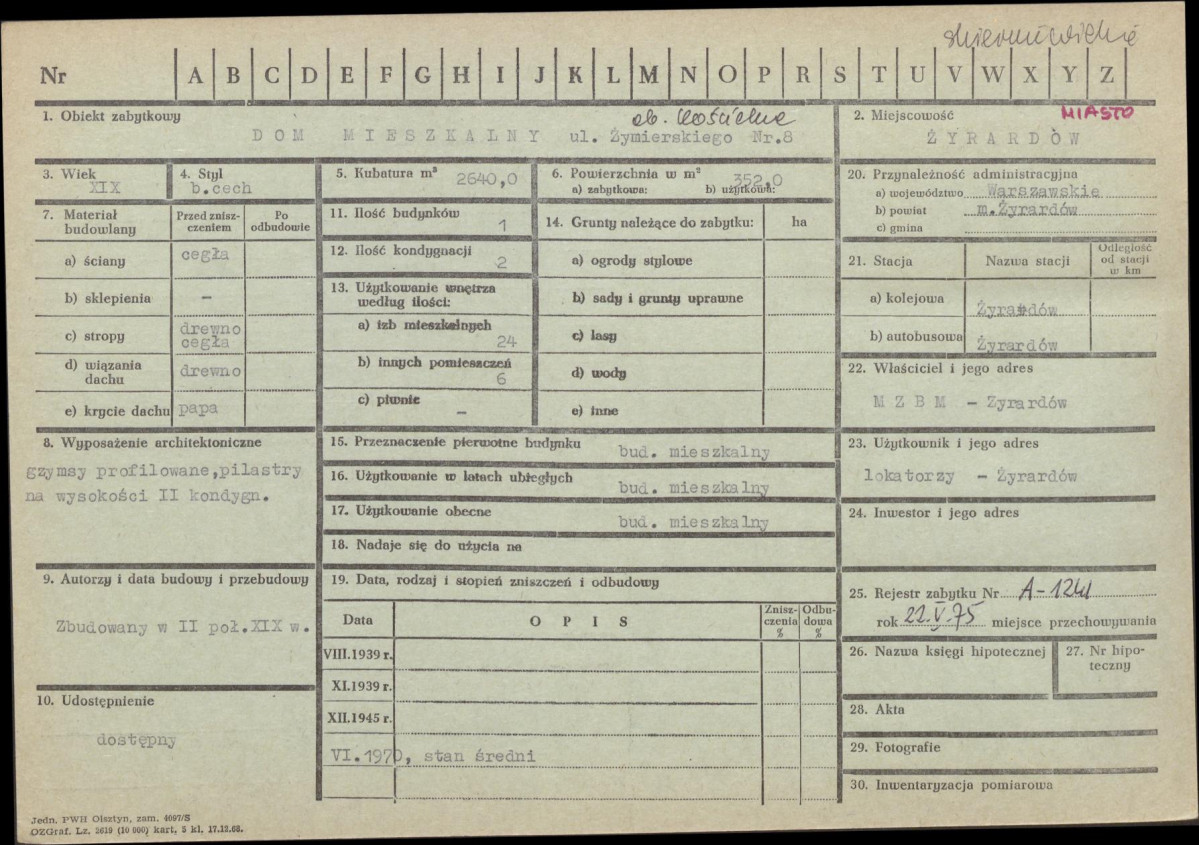 skierniewickie
Nr A B C D E F G H I J K L M N O P R S T U V W X Y Z
1. Obiekt zabytkowy
ob. Kościelna
DOM MIESZKALNY ul. Żymierskiego Nr.8
2. Miejscowość MIASTO
ŻYRARDÓW
3. Wiek
XIX
4. Styl
b.cech
5. Kubatura m³ 2640,0
6. Powierzchnia w m² 352,0
a) zabytkowa: b) użytkowa:
20. Przynależność administracyjna
a) województwo Warszawskie
b) powiat m.Żyrardów
c) gmina
7. Materiał budowlany
Przed zniszczeniem
Po odbudowie
a) ściany cegła
b) sklepienia –
c) stropy drewno
cegła
d) wiązania dachu drewno
e) krycie dachu papa
11. Ilość budynków 1
12. Ilość kondygnacji 2
13. Użytkowanie wnętrza
według ilości:
a) izb mieszkalnych 24
b) innych pomieszczeń 6
c) piwnic –
14. Grunty należące do zabytku: ha
a) ogrody stylowe
b) sady i grunty uprawne
c) lasy
d) wody
e) inne
21. Stacja Nazwa stacji
Odległość
od stacji
w km
a) kolejowa Żyrardów
b) autobusowa Żyrardów
22. Właściciel i jego adres
M Z B M – Zyrardów
8. Wyposażenie architektoniczne
gzymsy profilowane,pilastry
na wysokości II kondygn.
15. Przeznaczenie pierwotne budynku
bud. mieszkalny
16. Użytkowanie w latach ubiegłych
bud. mieszkalny
17. Użytkowanie obecne
bud. mieszkalny
18. Nadaje się do użycia na
23. Użytkownik i jego adres
lokatorzy – Żyrardów
24. Inwestor i jego adres
9. Autorzy i data budowy i przebudowy
Zbudowany w II poł.XIX w.
19. Data, rodzaj i stopień zniszczeń i odbudowy
Data
O P I S
Zniszczenia %
Odbudowa %
VIII.1939 r.
XI.1939 r.
XII.1945 r.
VI.1970, stan średni
25. Rejestr zabytku Nr A-1241
rok 22.V.75 miejsce przechowywania
26. Nazwa księgi hipotecznej
27. Nr hipoteczny
10. Udostępnienie
dostępny
28. Akta
29. Fotografie
30. Inwentaryzacja pomiarowa
Jedn. PWH Olsztyn, zam. 4097/S
OZGraf. Lz. 2619 (10 000) kart, 5 kl. 17.12.68.